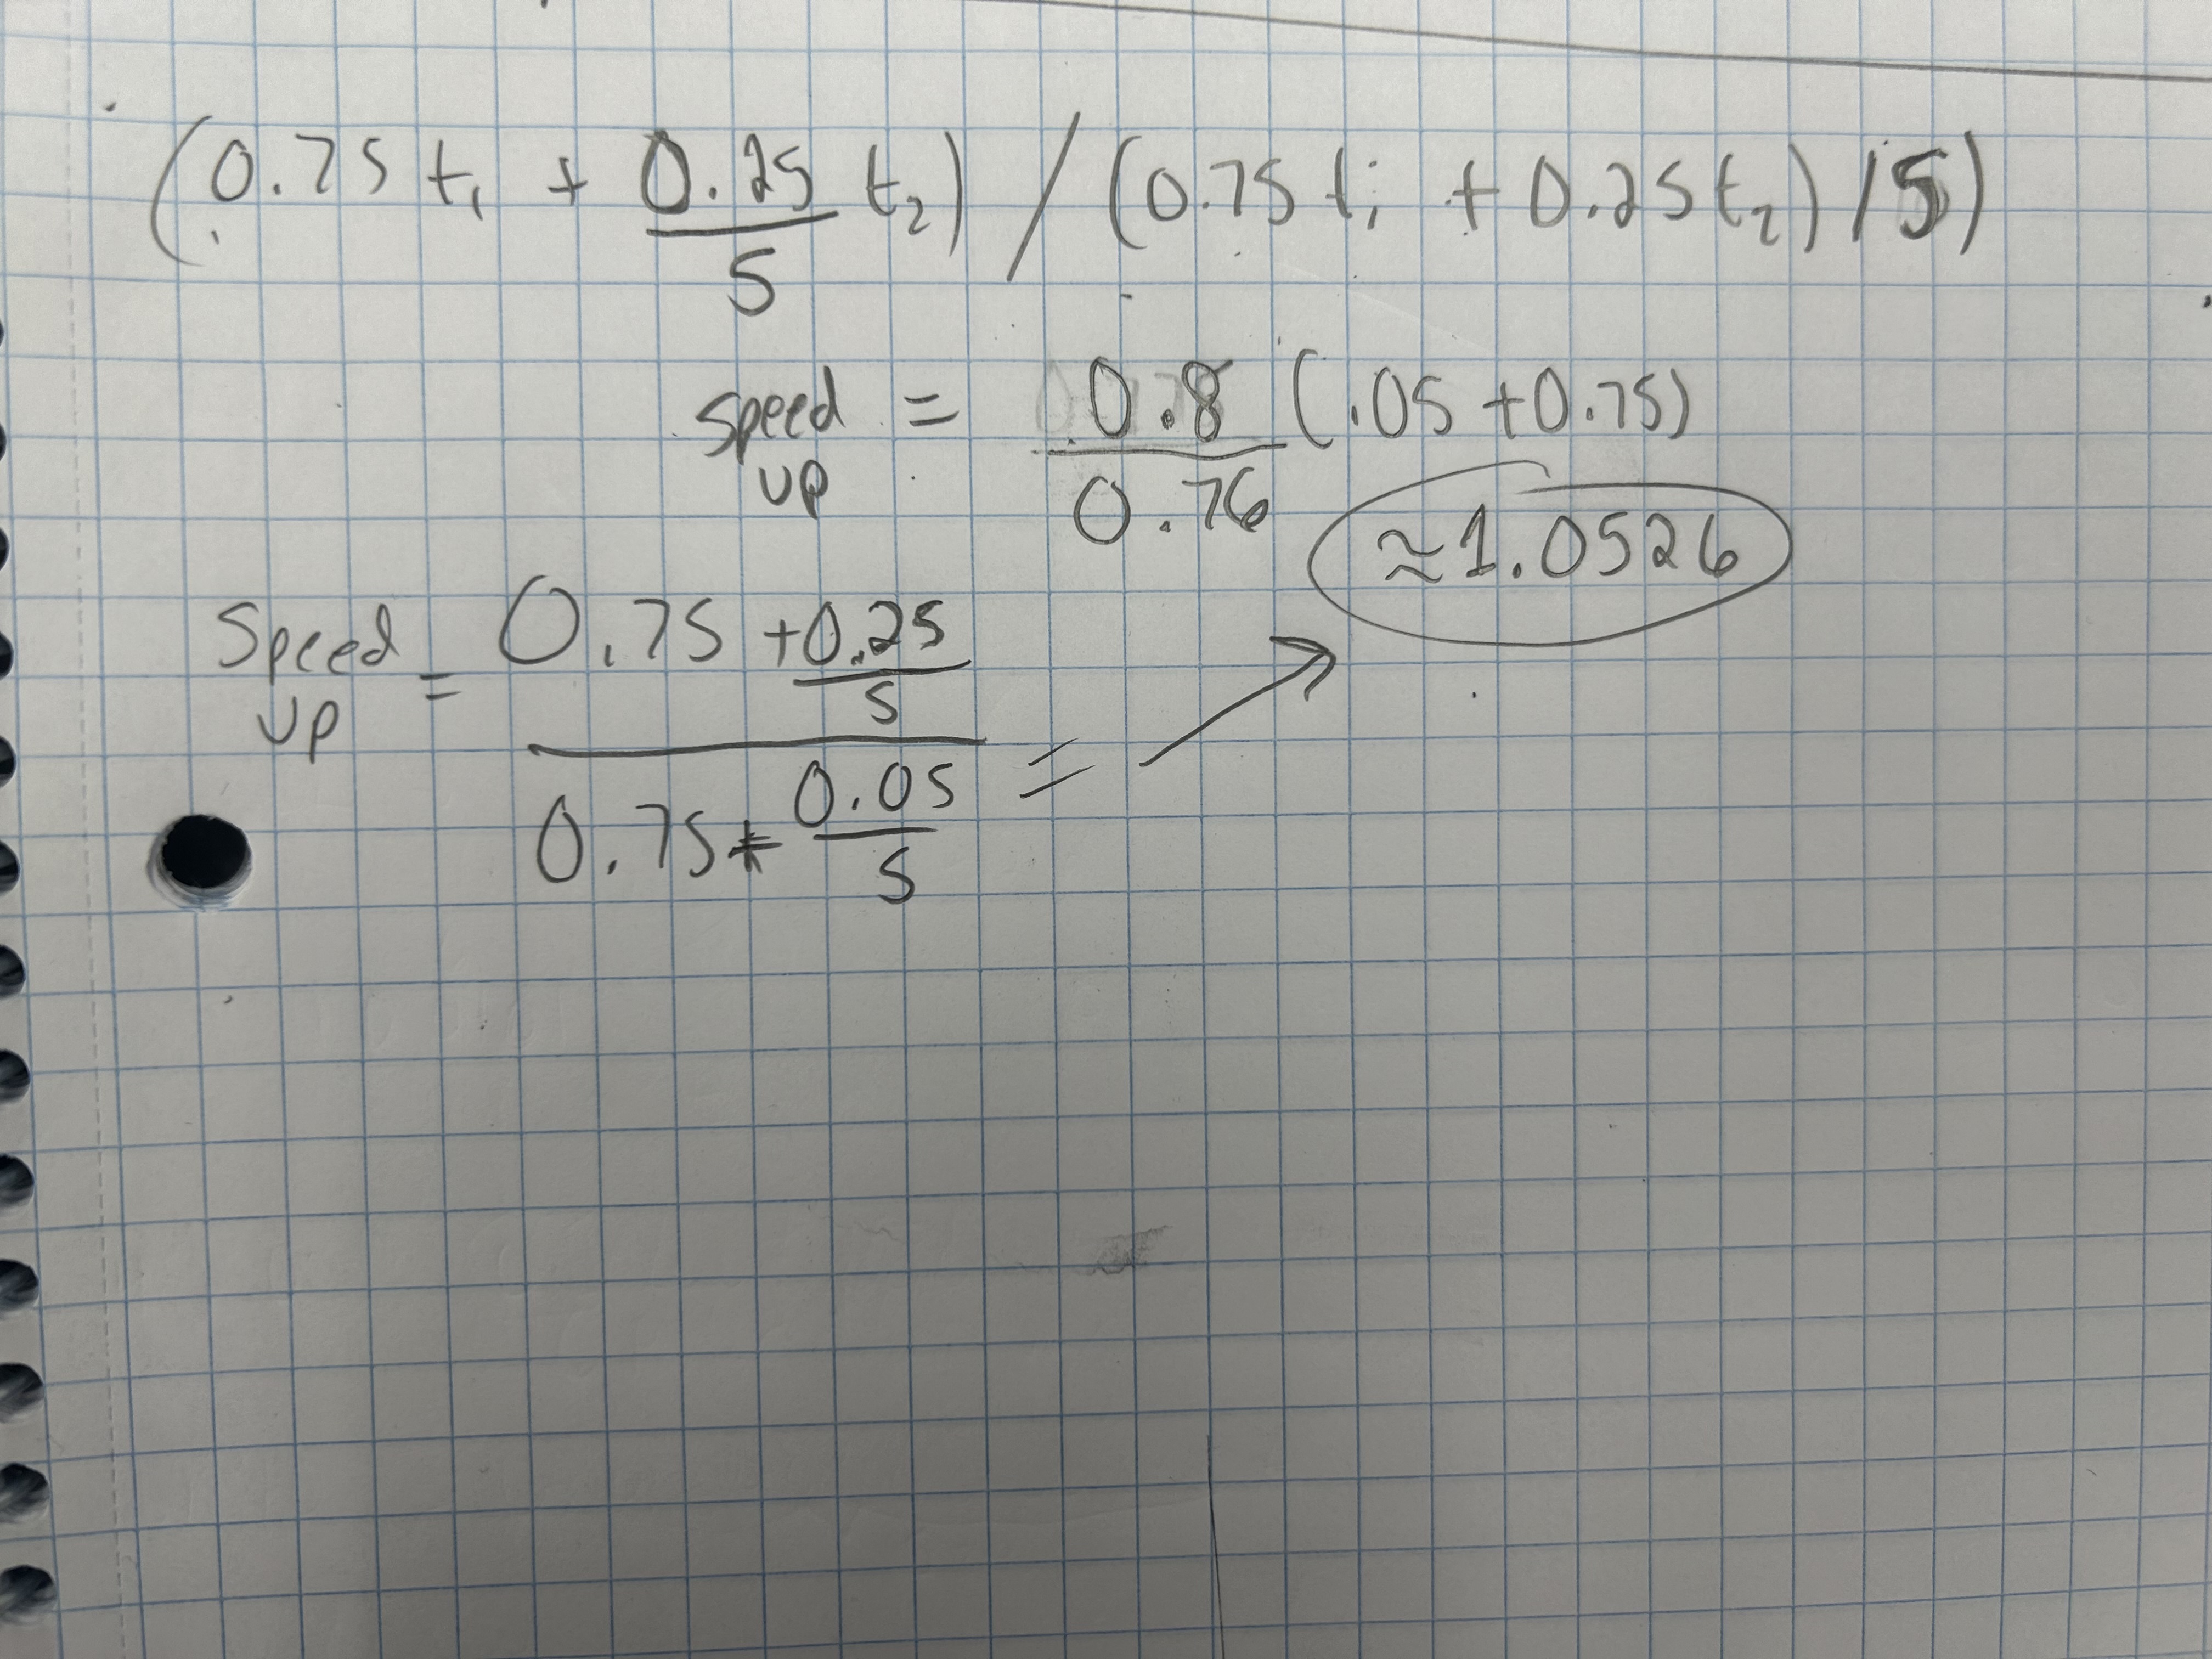 (0.75t₁ + 0.25/5 t₂) / (0.75t₁ + 0.25t₂)/5)
Speed up = 0.8/0.76 (.05 + 0.75)
Speed up = 0.75 + 0.25/5 / 0.75 + 0.05/5 = → ≈1.0526